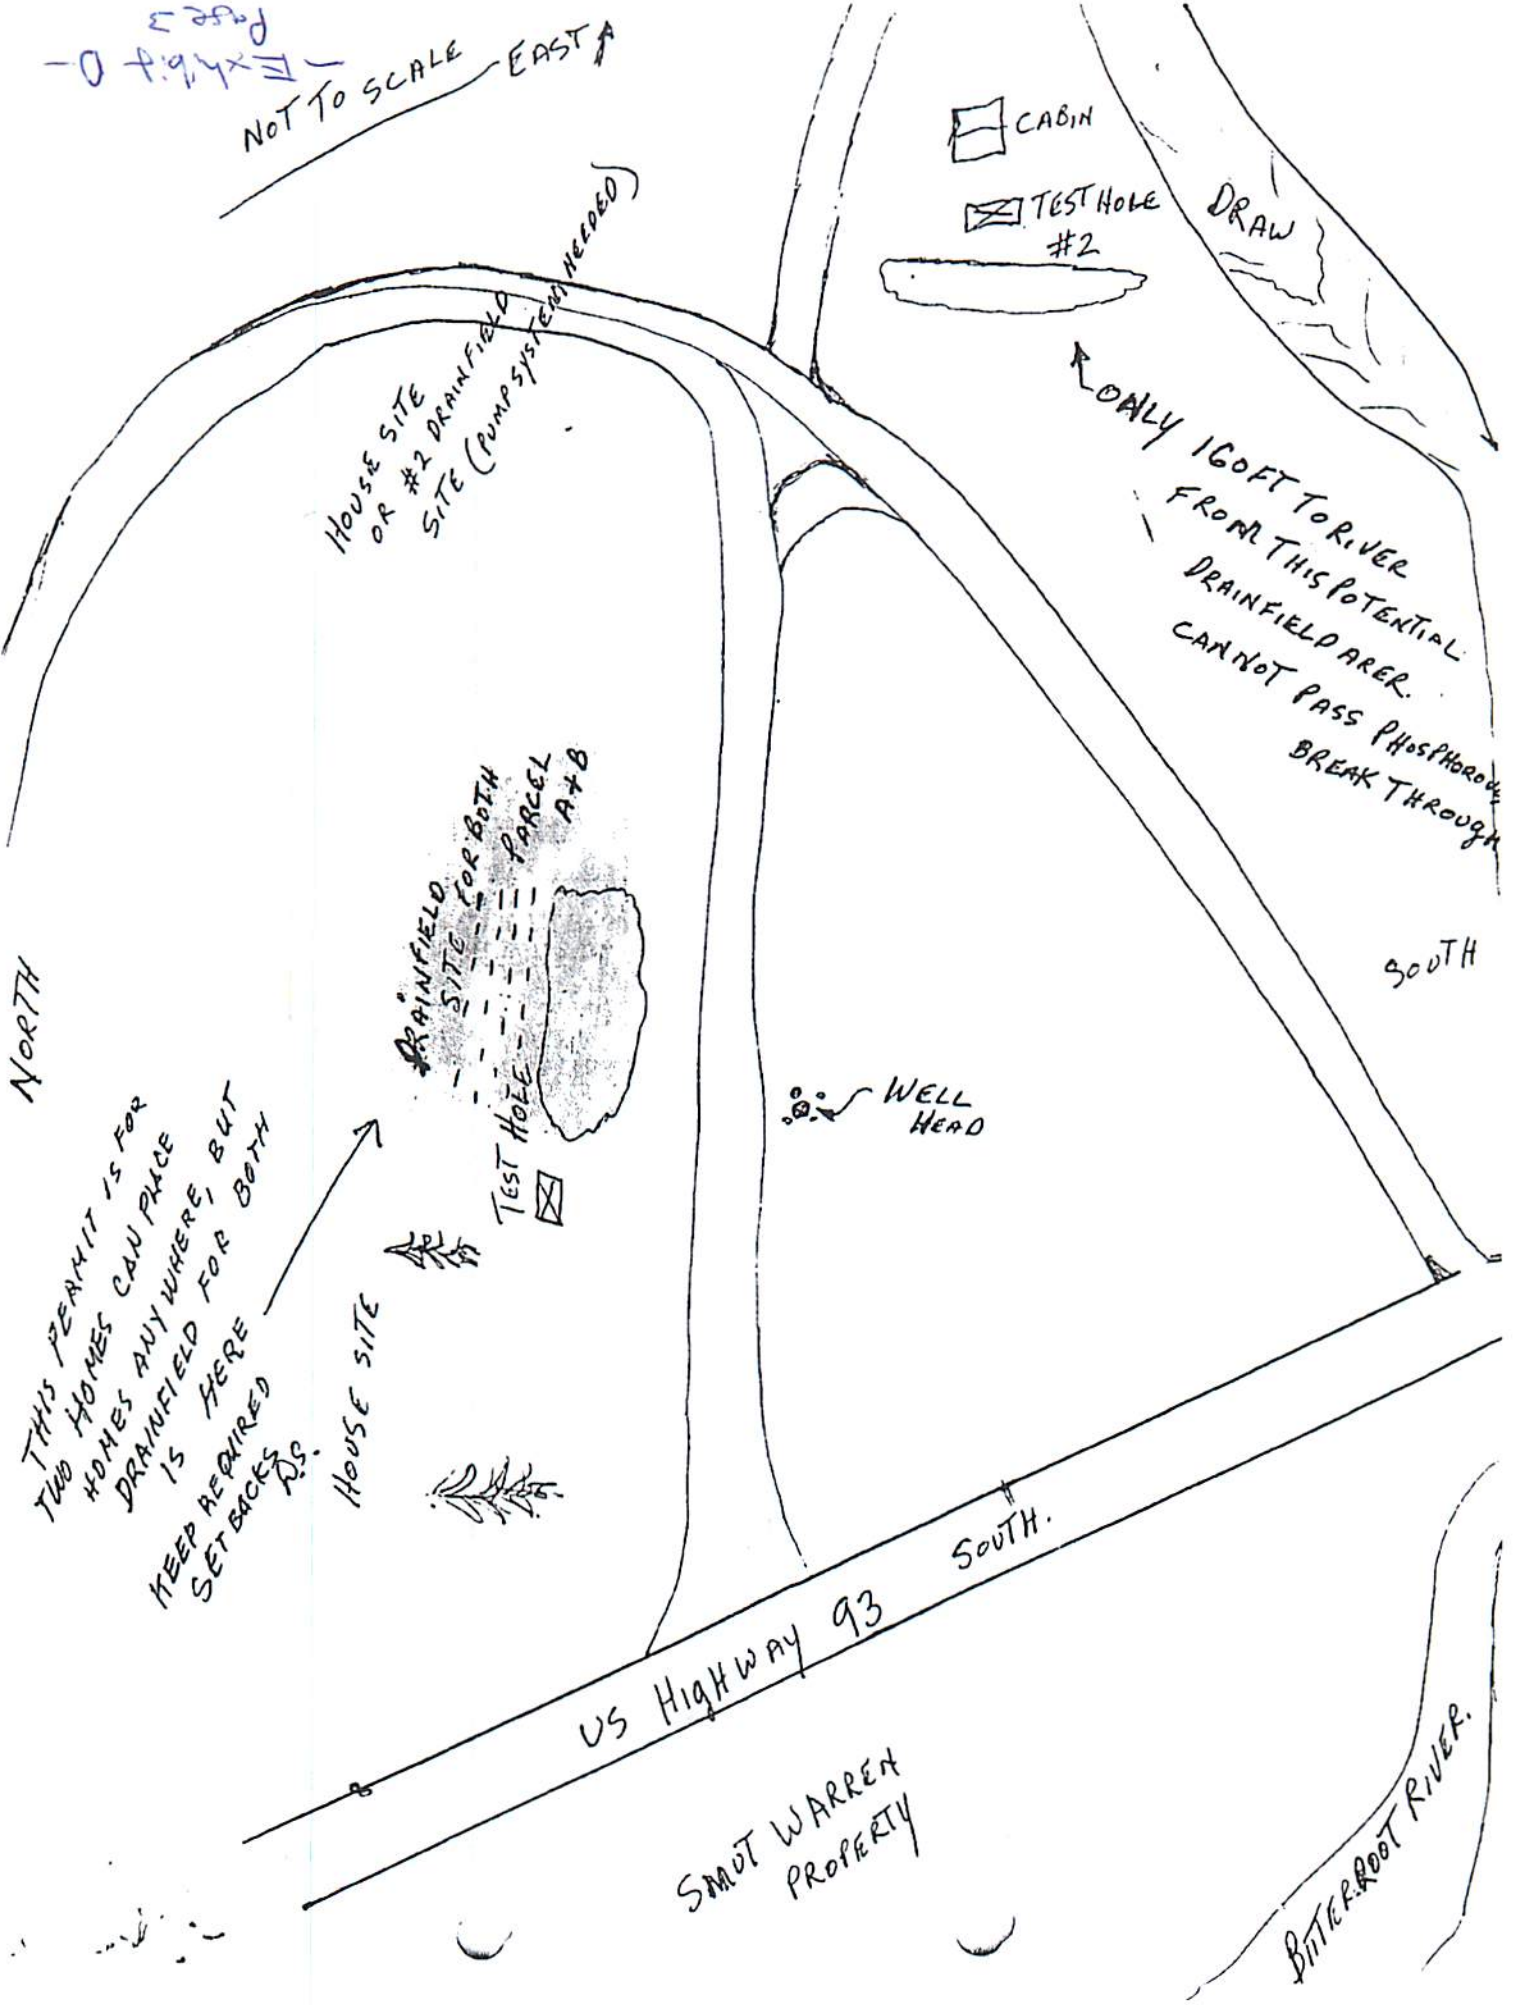 - Exhibit D -
Page 3
NOT TO SCALE
EAST
CABIN
TEST HOLE
#2
DRAW
HOUSE SITE
OR #2 DRAINFIELD
SITE (PUMP SYSTEM NEEDED)
ONLY 160FT TO RIVER
FROM THIS POTENTIAL
DRAINFIELD ARER.
CANNOT PASS PHOSPHOROUS
BREAK THROUGH
DRAINFIELD
SITE FOR BOTH
PARCEL
A+B
TEST HOLE
NORTH
SOUTH
WELL
HEAD
THIS PERMIT IS FOR
TWO HOMES CAN PLACE
HOMES ANYWHERE, BUT
DRAINFIELD FOR BOTH
IS HERE
KEEP REQUIRED
SETBACKS
D.S.
HOUSE SITE
US HIGHWAY 93 SOUTH.
SMUT WARREN
PROPERTY
BITTERROOT RIVER.